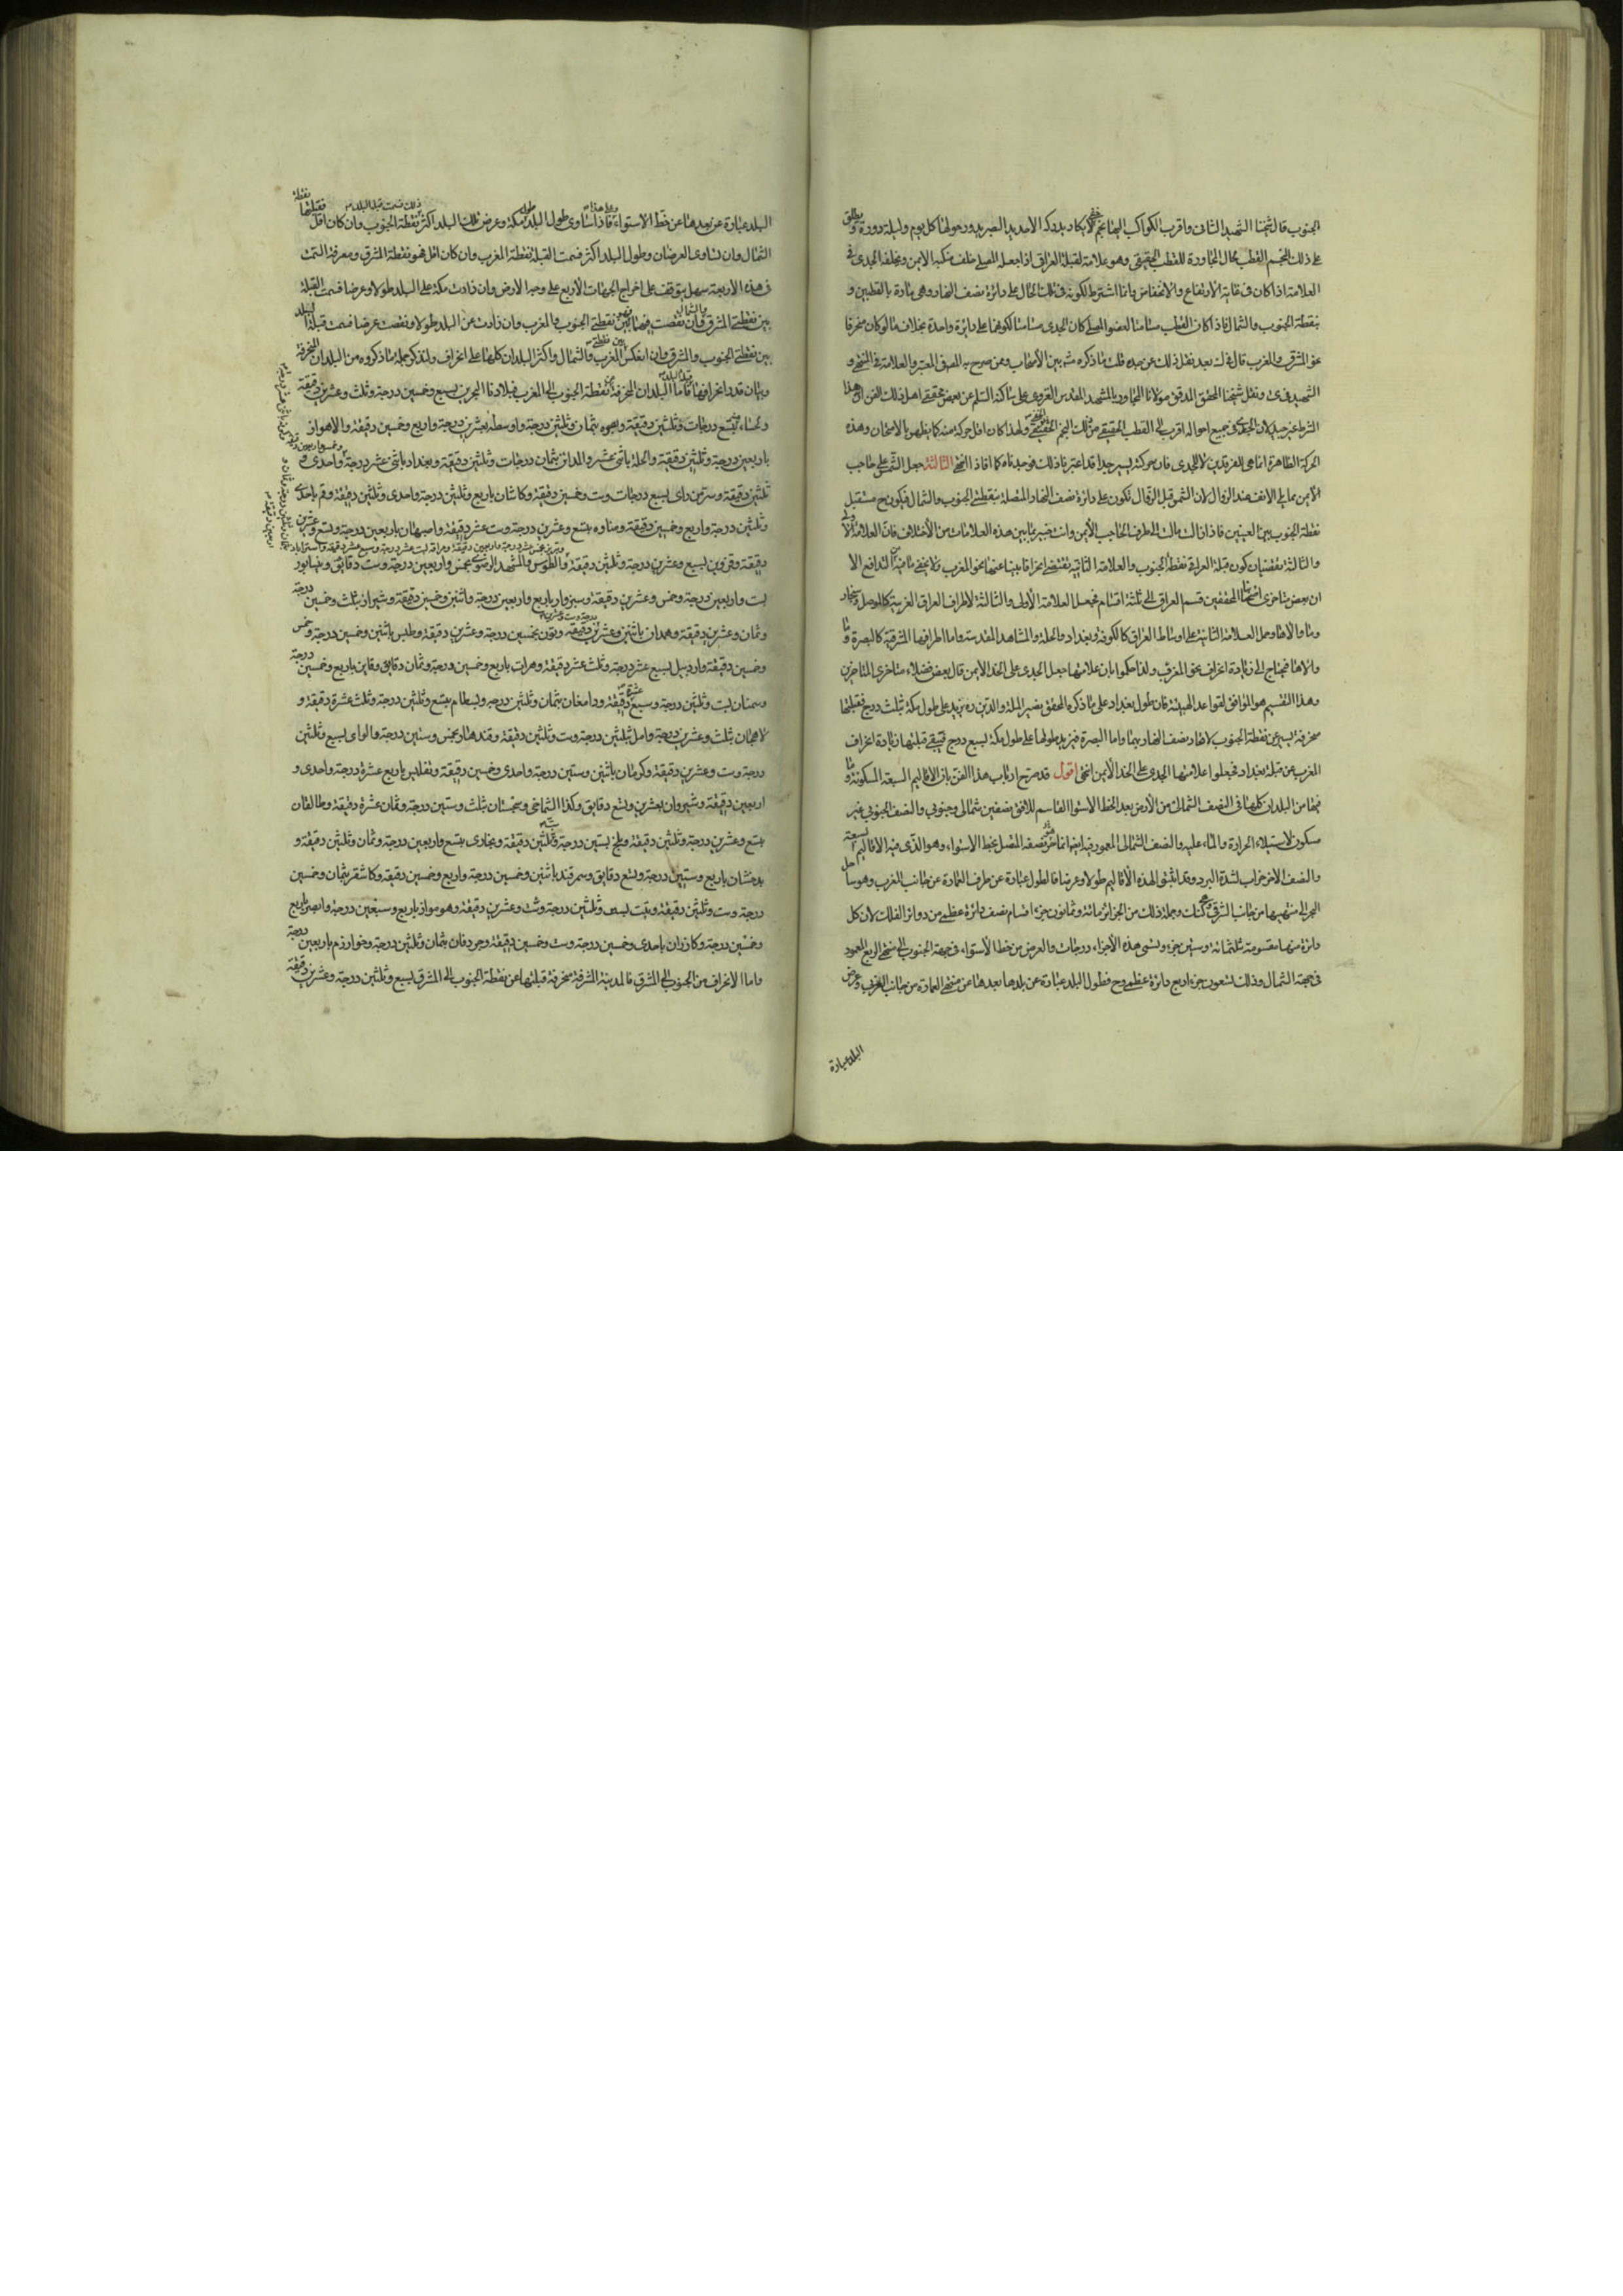 الجنوب قال شيخنا الشهيد الثانى واقرب الكواكب اليها نجم خفى لا يكاد يدركه الا حديد البصر يدور حولها كل يوم وليلة دورة ويطلق
على ذلك النجم القطب مجال المجاورة للقطب الحقيقى وهو علامة لقبلة العراق اذا جعله المصلى خلف منكبه الايمن ويخلفه الجدى فى
العلامة اذا كان فى غاية الارتفاع والانخفاض وانما اشترط لكونه فى تلك الحال على دائرة نصف النهار وهى مارة بالقطبين و
بنقطة الجنوب والشمال فاذا كان القطب مسامتا لعضو المصلى كان الجدى مسامتا لكونهما على دائرة واحدة بخلاف ما لو كان منحرفا
نحو المشرق والمغرب قال فى ك بعد نقل ذلك عن جده قلت ما ذكره مش بين الأصحاب وممن صرح به المص فى المعتبر والعلامة فى المنتهى و
الشهيد فى ى ونقل شيخنا المحقق المدقق مولانا المجاور بالمشهد المقدس الغروى على ساكنه السلم عن بعض محققى اهل ذلك الفن ان هذا
الشرط غير جيد لان الجدى فى جميع احواله اقرب الى القطب الحقيقى من ذلك النجم الخفى ولهذا كان اقل حركة منه كما يظهر بالامتحان وهذه
الحركة الظاهرة انما هى للفرقدين لا للجدى فان حركته يسير جدا قد اعتبرنا ذلك فوجدناه كما افاد انتهى الثالثة جعل الشمس على حاجب
الأيمن مما يلى الانف عند الزوال لان الشمس قبل الزوال تكون على دائرة نصف النهار المتصلة بنقطتى الجنوب والشمال فيكون ح مستقبل
نقطة الجنوب بين العينين فاذا زالت مالت الى طرف الحاجب الأيمن وانت خبير بما بين هذه العلامات من الأختلاف فان العلامة الأولى
والثالثة تقتضيان كون قبلة العراق نقطة الجنوب والعلامة الثانية تقتضى انحرافا بينا عنها نحو المغرب ولا يخفى ما فيه من التدافع الا
ان بعض متأخرى اصحابنا المحققين قسم العراق الى ثلثة اقسام فجعل العلامة الأولى والثالثة لاطراف العراق الغربية كالموصل وسنجار
وما والاها وحمل العلامة الثانية على اوساط العراق كالكوفة وبغداد والحلة والمشاهد المقدسة واما اطرافها الشرقية كالبصرة وما
والاها فيحتاج الى زيادة انحراف نحو المغرب ولذا حكموا بان علامتها جعل الجدى على الخد الأيمن قال بعض فضلاء متأخرى المتأخرين
وهذا التقسيم هو الموافق لقواعد الهيئة فان طول بغداد على ما ذكره المحقق نصير الملة والدين ره يزيد على طول مكة بثلث درج فقبلتها
منحرفة ليسير عن نقطة الجنوب لانهار نصف النهار بهما واما البصرة فيزيد طولها على طول مكة بسبع درج فيبقى قبلتها زيادة انحراف
المغرب عن قبلة بغداد فجعلوا علامتها الجدى على الخد الأيمن انتهى اقول قد صرح ارباب هذا الفن بان الاقاليم السبعة المسكونة وما
فيها من البلدان كلها فى النصف الشمالى من الأرض بعد الخط الاستواء القاسم للافق بنصفين شمالى وجنوبى والنصف الجنوبى غير
مسكون لاستيلاء الحرارة والماء عليه والنصف الشمالى المعمور فيه ايضا انما هو نصفه المتصل بخط الاستواء وهو الذى فيه الاقاليم السبعة
والنصف الاخر خراب لشدة البرد وقد اثبتوا لهذه الأقاليم طولا وعرضا فالطول عبارة عن طرف العمارة عن جانب المغرب وهو ساحل
البحر الى منتهيها من جانب الشرقى وجملة ذلك من الجزائر مائة وثمانون جزء اقسام نصف دائرة عظمى من دوائر الفلك لان كل
دائرة منها مقسومة ثلثمائة وستين جزء وتسمى هذه الأجزاء درجات والعرض من خط الأستواء فى جهة الجنوب الى منتهى الربع المعمور
فى جهة الشمال وذلك تسعون جزء اربع دائرة عظمى وح فطول البلد عبارة عن بلدها بعدها عن منتهى العمارة من جانب الغربى وعرض
البلد عبارة
البلد عبارة عن بعدها عن خط الاستواء وعلى هذا فاذا ساوى طول البلد طول مكة وعرض ذلك البلد اكثر فسمت قبلة البلد نقطة الجنوب وان كان اقل فقبلتها نقطة
الشمال وان تساوى العرضان وطول البلد اكثر فسمت القبلة نقطة المغرب وان كان اقل فهو نقطة المشرق ومعرفة السمت
فى هذه الأربعة سهل يتوقف على اخراج الجهات الأربع على وجه الارض وان زادت مكة على البلد طولا وعرضا فسمت القبلة
بين نقطتى المشرق والشمال وان نقصت فيهما بين نقطتى الجنوب والمغرب وان زادت عن البلد طولا ونقصت عرضا فسمت قبلة البلد
بين نقطتى الجنوب والمشرق وان انعكس فبين نقطتى المغرب والشمال واكثر البلدان كلها على انحراف ولنذكر جملة مما ذكروه من البلدان المنحرفة
وبيان قدر انحرافها فاما قبلة البلدان المنحرفة من نقطة الجنوب الى المغرب فبلادنا البحرين بسبع وخمسين درجة وثلث وعشرين دقيقة
ولحساء بتسع درجات وثلثين دقيقة والبصره بثمان وثلثين درجة واوسطه بعشرين درجة واربع وخمسين دقيقة والاهواز
باربعين درجة وثلثين دقيقة والحلة باثنى عشر والمدائن بثمان درجات وثلثين دقيقة وبغداد باثنى عشر درجة واحدى و
ثلثين دقيقة وسر من راى بسبع درجات وست وخمسين دقيقة وكاشان باربع وثلثين درجة واحدى وثلثين دقيقة وقم باحدى
وثلثين درجة واربع وخمسين دقيقة وساوه بتسع وعشرين درجة وست عشر دقيقة واصبهان باربعين درجة وتسع وعشرين
دقيقة وقزوين بسبع وعشرين درجة وثلثين دقيقة والطوس والمشهد الرضوى بخمس واربعين درجة وست دقايق ونيشابور
بست واربعين درجة وخمس وعشرين دقيقة وسبزوار باربع واربعين درجة واثنين وخمسين دقيقة وشيراز بثلث وخمسين درجة
وثمان وعشرين دقيقة وهمدان باثنين وعشرين دقيقة وتون بخمسين درجة وعشرين دقيقة وطبس باثنين وخمسين درجة وخمس
وخمسين دقيقة واردبيل بسبع عشر درجة وثلث عشر دقيقة وهرات باربع وخمسين درجة وثمان دقايق وقاين باربع وخمسين درجة
وسمنان بست وثلثين درجة وسبع عشرة دقيقة ودامغان بثمان وثلثين درجة وبسطام بتسع وثلثين درجة وثلث عشرة دقيقة و
لاهجان بثلث وعشرين درجة وامل بثلثين درجة وست وثلثين دقيقة وقندهار بخمس وستين درجة والواى لسبع وثلثين
درجة وست وعشرين دقيقة وكرمان باثنين وستين درجة واحدى وخمسين دقيقة وتفليس باربع عشرة درجة واحدى و
اربعين دقيقة وشيروان بعشرين وتسع دقايق وكذا الشماخى وسجستان بثلث وستين درجة وثمان عشرة دقيقة وطالقان
بتسع وعشرين درجة وثلثين دقيقة وبلخ بستين درجة وثلثين دقيقة وبخارى بتسع واربعين درجة وثمان وثلثين دقيقة و
بدخشان باربع وستين درجة وتسع دقايق وسمرقند باثنين وخمسين درجة واربع وخمسين دقيقة وكاشقر بثمان وخمسين
درجة وست وثلثين دقيقة وتبت بست وثلثين درجة وست وعشرين دقيقة وهرمواز باربع وسبعين درجة وابهر باربع
وخمسين درجة وكازران باحدى وخمسين درجة وست وخمسين دقيقة وجردقان بثمان وثلثين درجة وخوارزم باربعين درجة
واما الانحراف من الجنوب الى المشرق فالمدينة المشرفة منحرفة قبلتها عن نقطة الجنوب الى المشرق بسبع وثلثين درجة وعشرين دقيقة